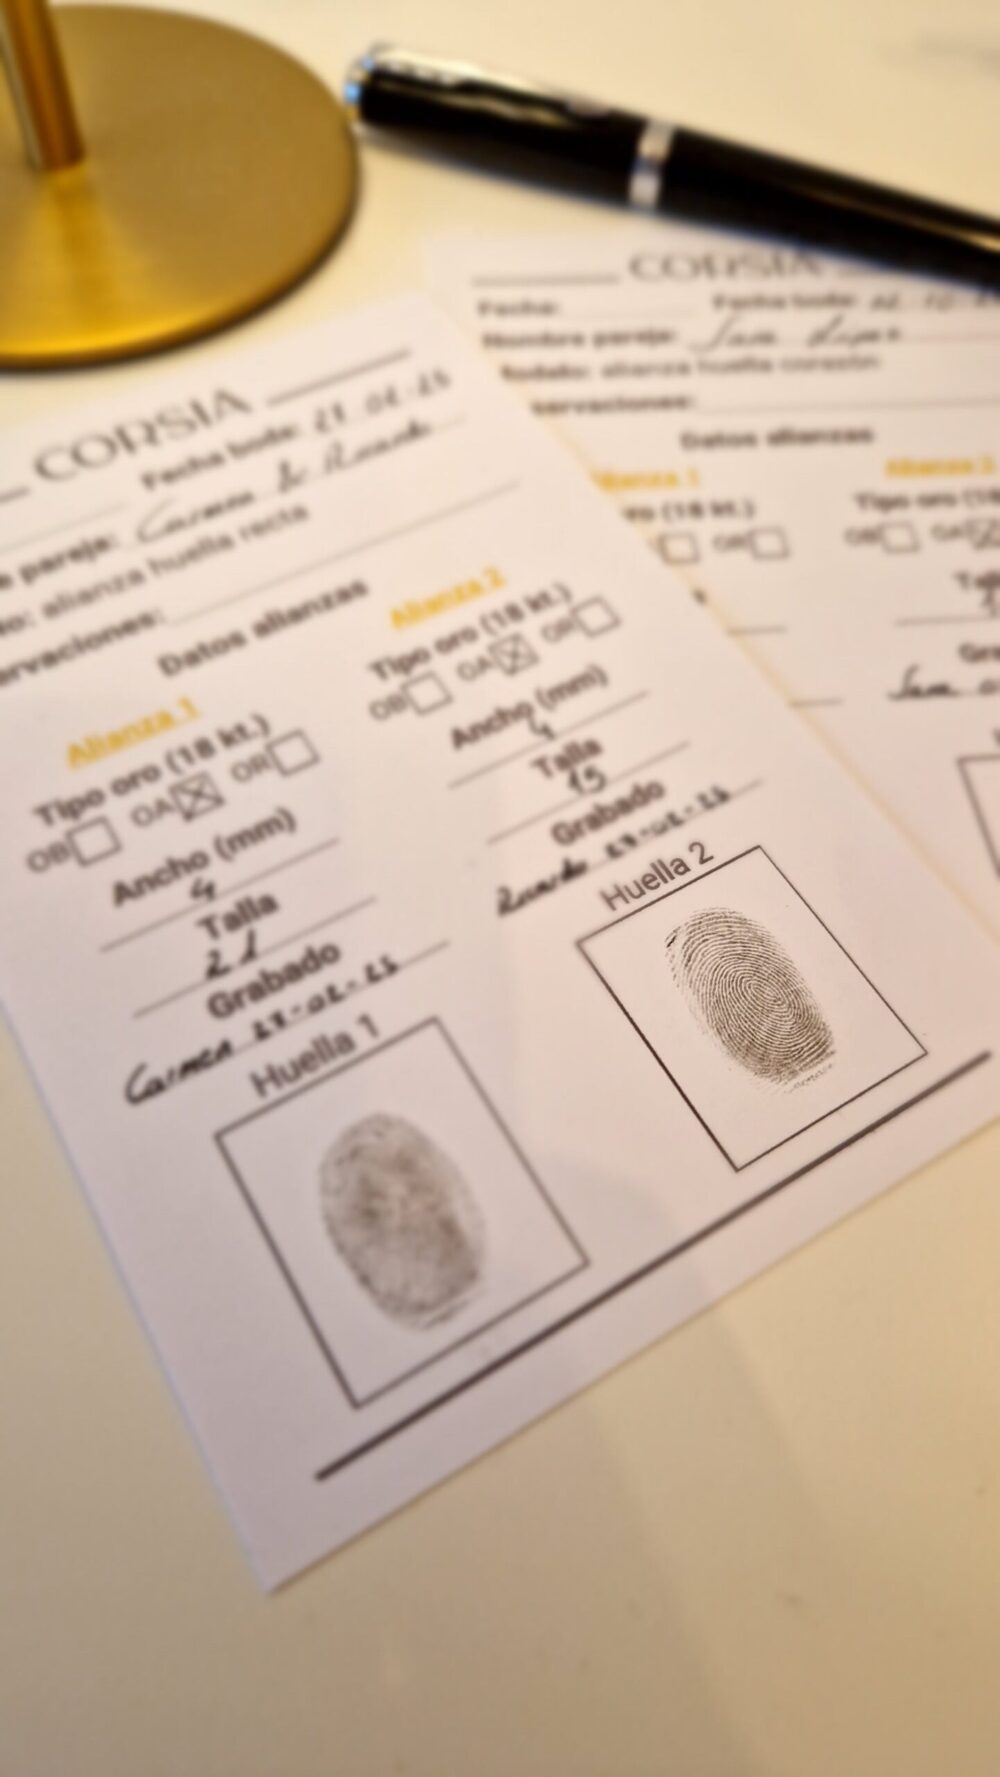 CORSIA
Fecha boda: 27-02-25
pareja: Carmen & Ricardo
alianza huella recta
ervaciones:
Datos alianzas
Alianza 1
Tipo oro (18 kt.)
OB OA OR
Ancho (mm)
4
Talla
21
Grabado
Carmen 27-02-25
Huella 1
Alianza 2
Tipo oro (18 kt.)
OB OA OR
Ancho (mm)
4
Talla
15
Grabado
Ricardo 27-02-25
Huella 2
CORSIA
Fecha:
Fecha boda:
Nombre pareja:
Modelo: alianza huella corazón
ervaciones:
Datos alianzas
Alianza 1
(18 kt.)
OR
Alianza 2
Tipo oro (18
OB OA